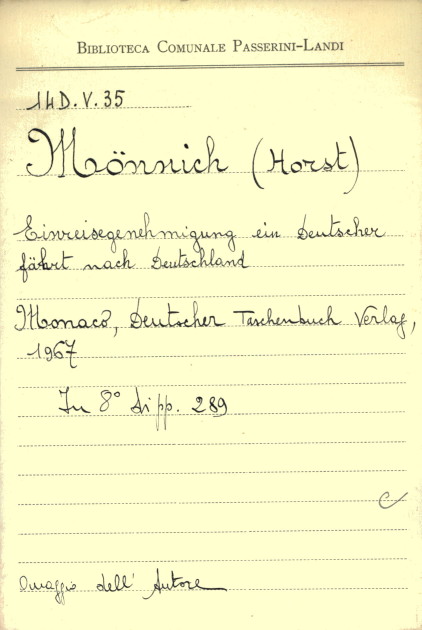 BIBLIOTECA COMUNALE PASSERINI-LANDI
14D.V.35
Mönnich (Horst)
Einreisegenehmigung ein Deutscher
fährt nach Deutschland
Monaco, Deutscher Taschenbuch Verlag,
1967
In 8° di pp. 289
C
Omaggio dell' Autore